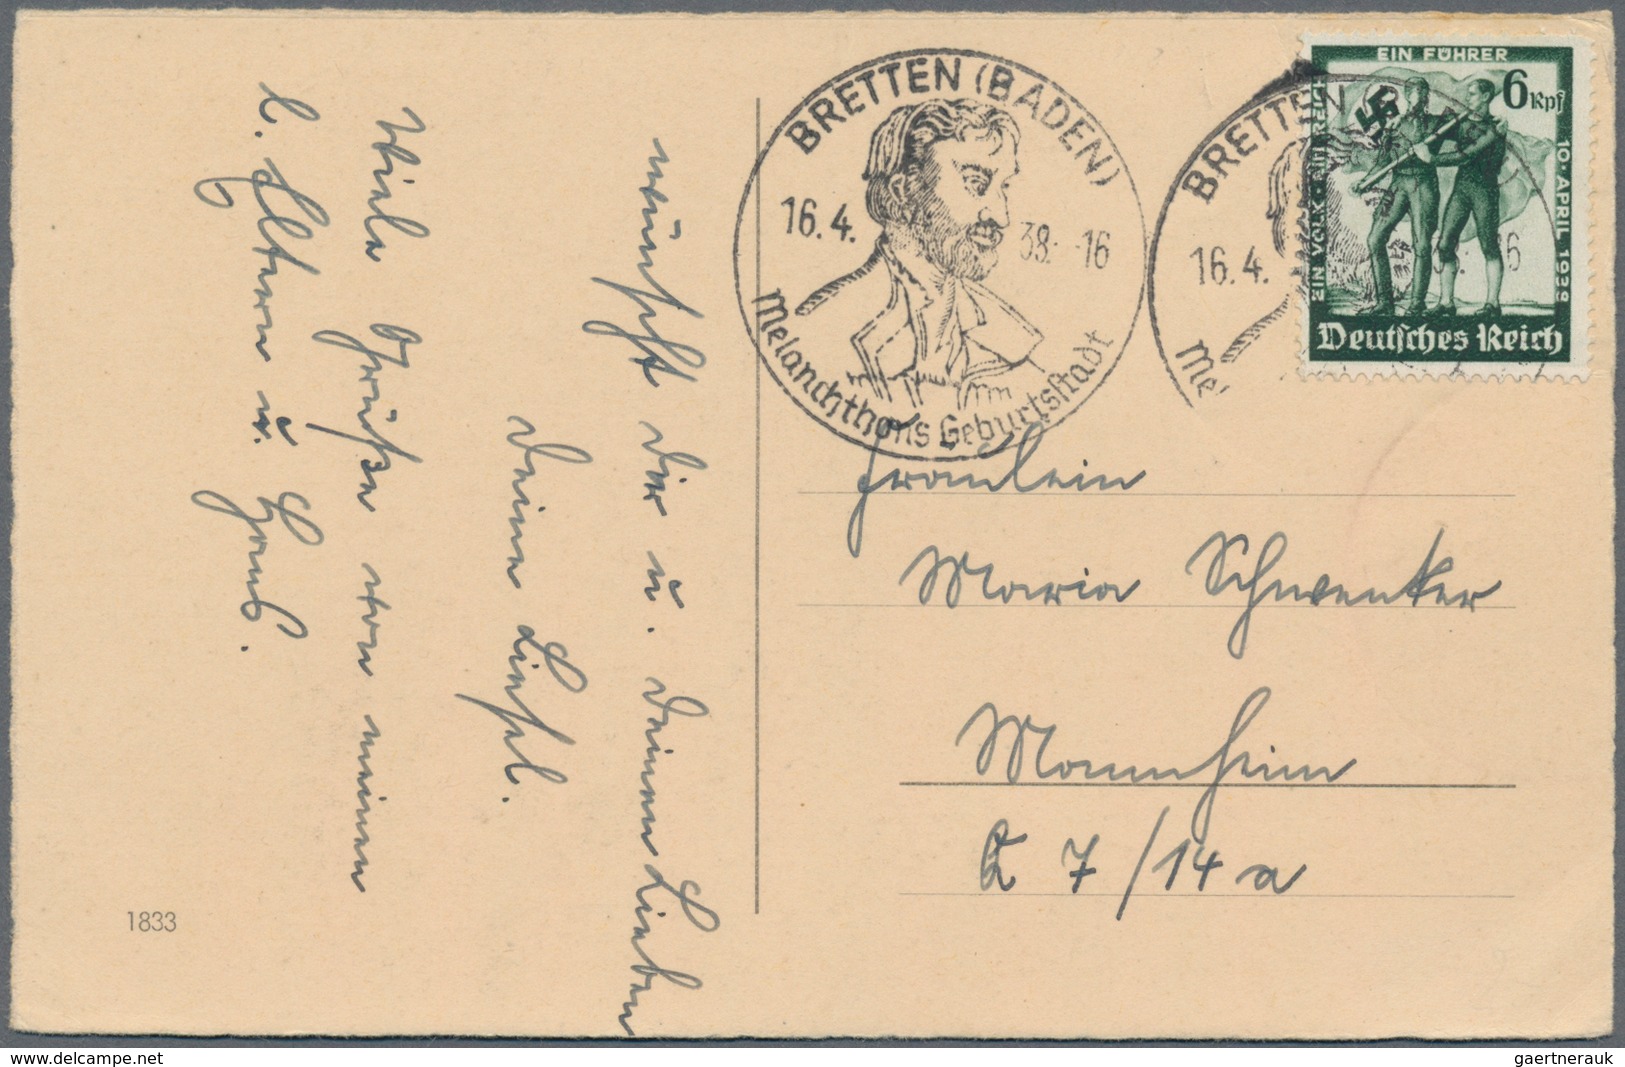 wünscht dir u. deinen Lieben
deine Liesel.
Viele Grüße von meinen
l. Eltern u. Hans.
1833
BRETTEN (BADEN)
16.4.38.-16
Melanchthons Geburtsstadt
BRETTEN (BADEN)
16.4. 38.-16
Mel
EIN FÜHRER
EIN VOLK EIN REICH
10. APRIL 1938
6 Rpf
Deutsches Reich
Fräulein
Maria Schwenker
Mannheim
K 7/14a
www.delcampe.net
gaertnerauk